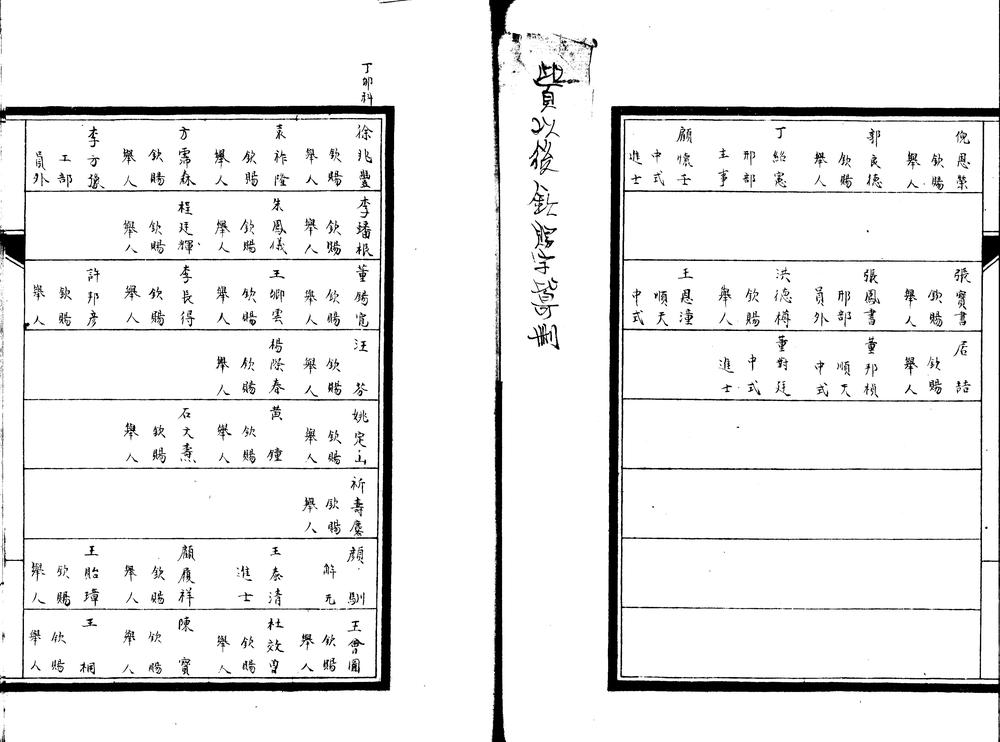 倪恩榮
欽賜
舉人
郭良德
欽賜
舉人
丁紹憲
邢部
主事
顧懷壬
中式
進士
張寶書
欽賜
舉人
張鳳書
邢部
員外
洪德樽
欽賜
舉人
王恩潼
順天
中式
居喆
欽賜
舉人
董邦楨
順天
中式
董對廷
中式
進士
以後欽賜字皆刪
丁卯科
徐兆豐
欽賜
舉人
袁祚隆
欽賜
舉人
方霈森
欽賜
舉人
李方豫
工部
員外
李蟠根
欽賜
舉人
朱鳳儀
欽賜
舉人
程廷輝
欽賜
舉人
董錡寬
欽賜
舉人
王卿雲
欽賜
舉人
李長得
欽賜
舉人
許邦彥
欽賜
舉人
汪芬
欽賜
舉人
楊際春
欽賜
舉人
姚定山
欽賜
舉人
黃鐘
欽賜
舉人
石文燾
欽賜
舉人
祈壽麐
欽賜
舉人
顏馴
解元
王泰清
進士
顧履祥
欽賜
舉人
王胎璋
欽賜
舉人
王會圖
欽賜
舉人
杜效曾
欽賜
舉人
陳寶
欽賜
舉人
王桐
欽賜
舉人